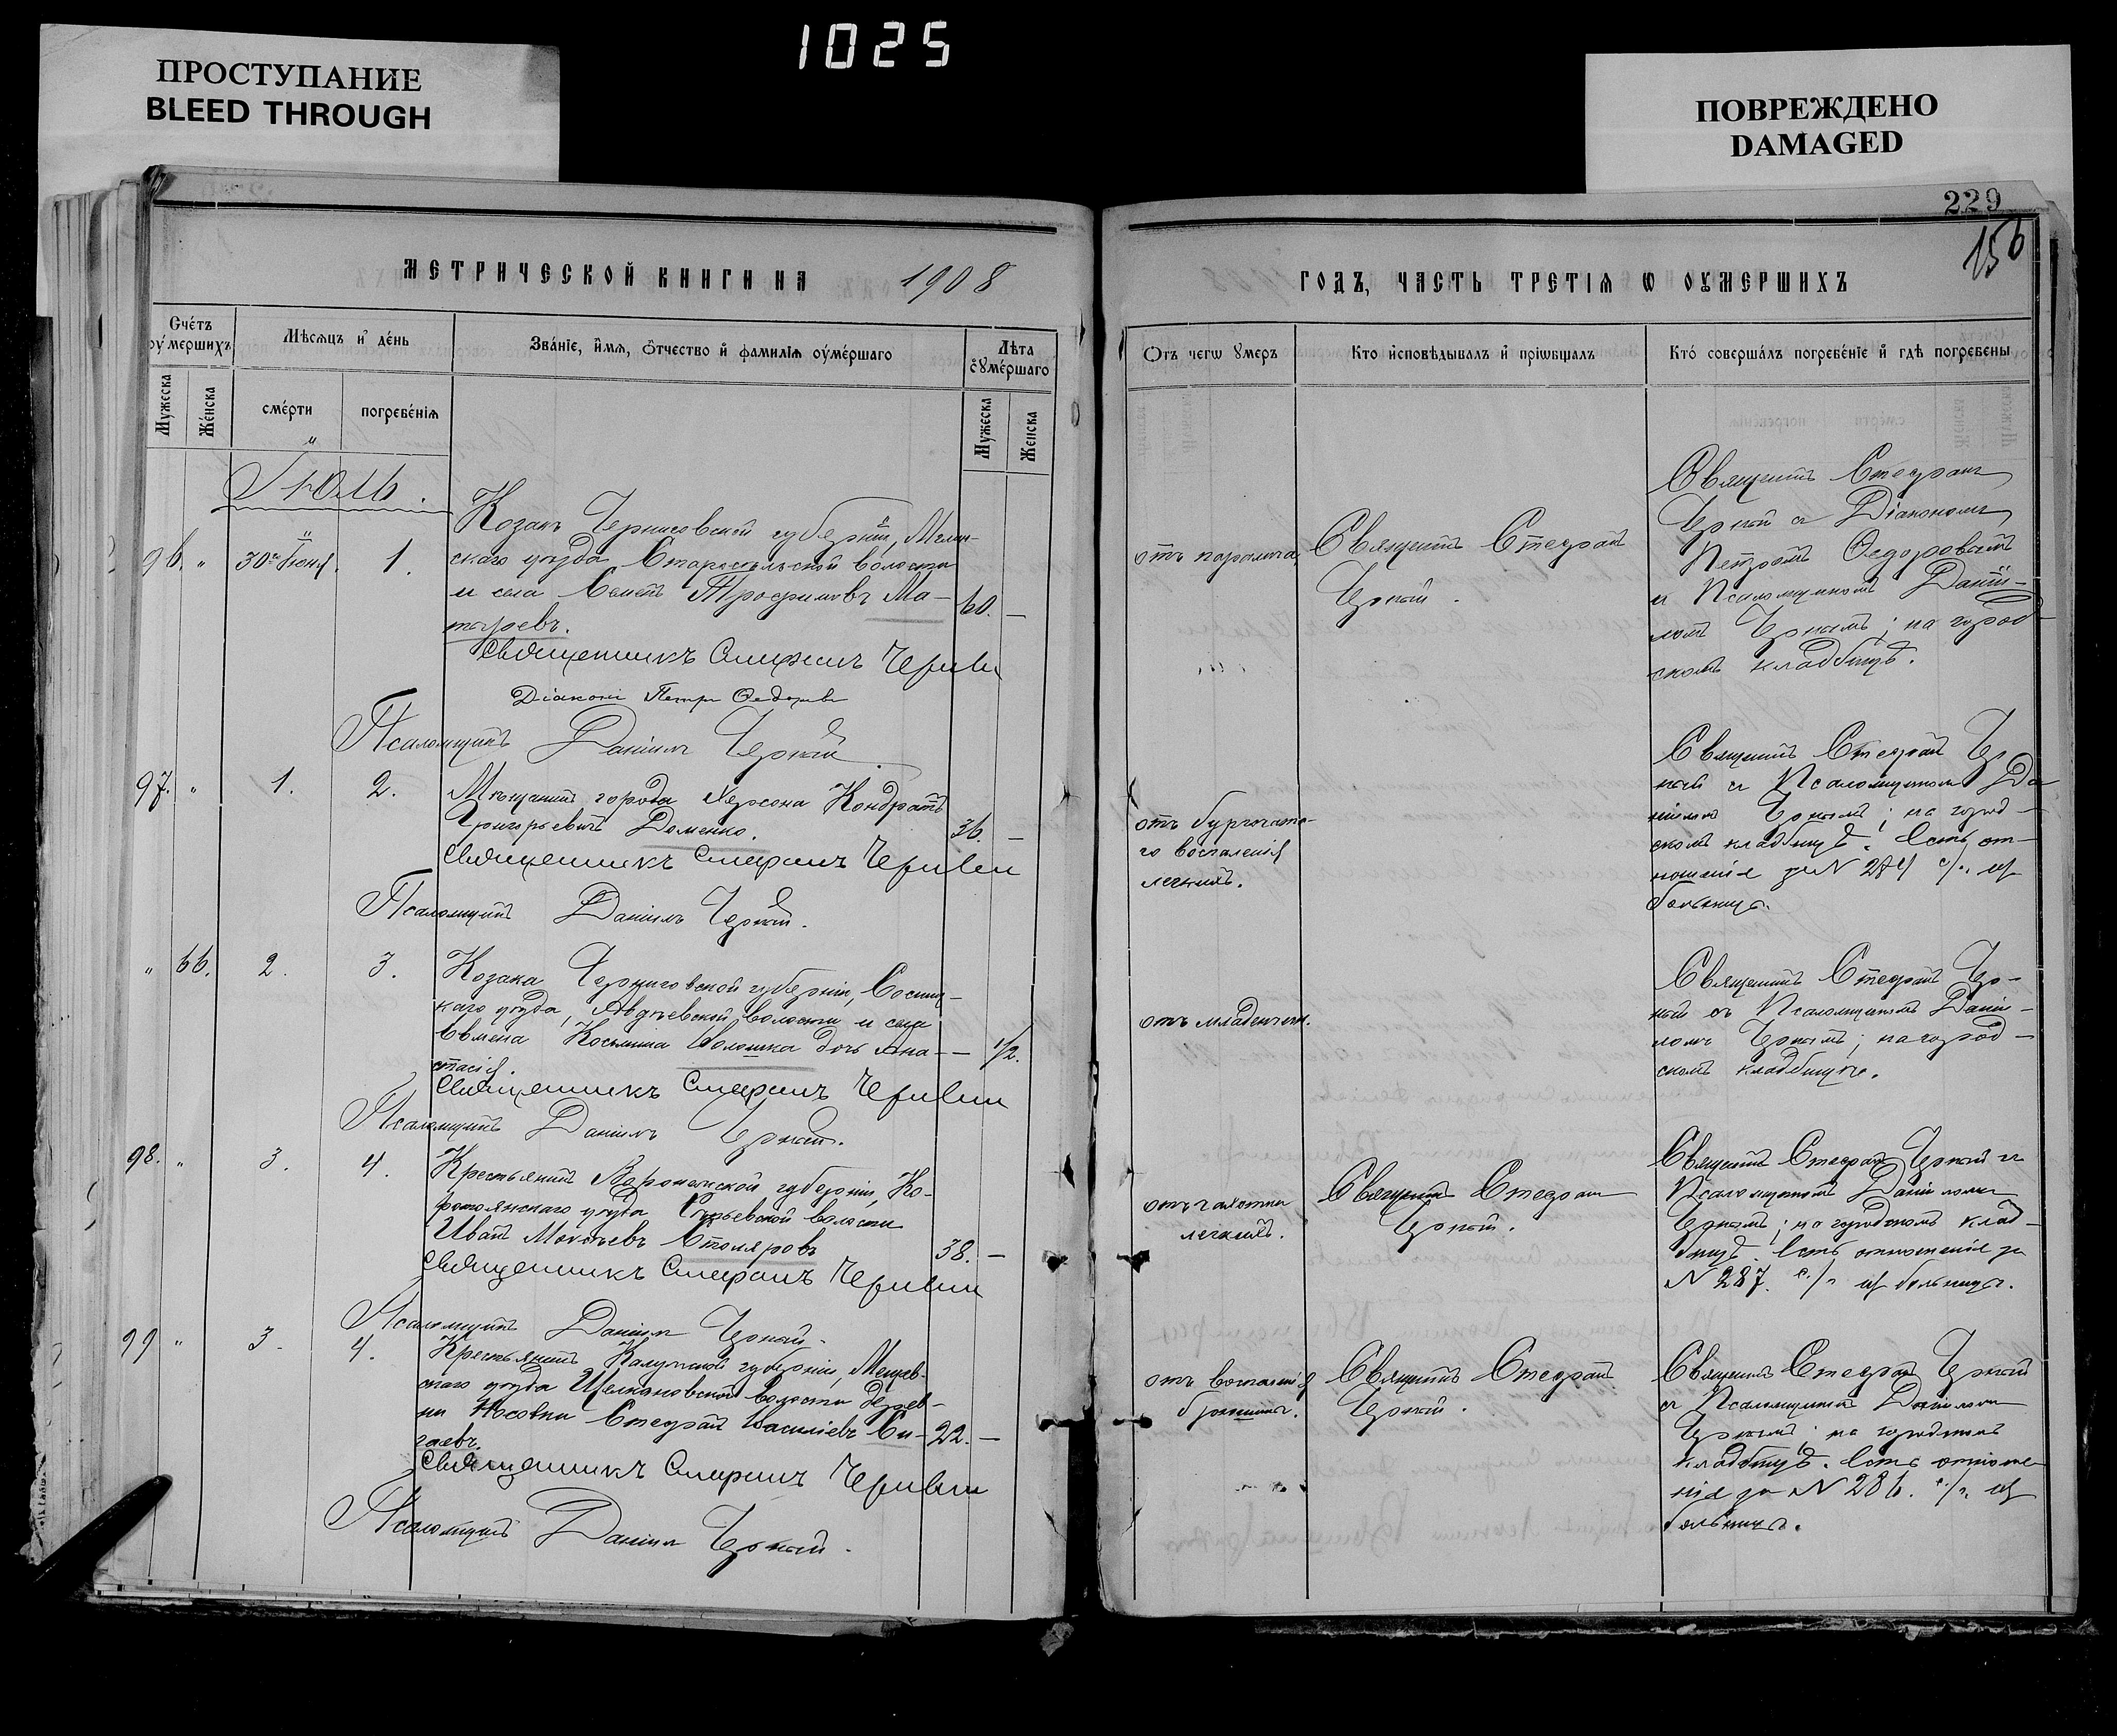 1025
ПРОСТУПАНИЕ
BLEED THROUGH
ПОВРЕЖДЕНО
DAMAGED
229
156
МЕТРИЧЕСКОЙ КНИГИ НА 1908
ГОДЪ, ЧАСТЬ ТРЕТІЯ Ѡ ОУМЕРШИХЪ
Счётъ оумершихъ
Мѣсяцъ и день
Званіе, имя, отчество и фамилія оумершаго
Лѣта оумершаго
Мужеска
Женска
смерти
погребенія
Мужеска
Женска
Отъ чегѡ умеръ
Кто исповѣдывалъ и пріѡбщалъ
Кто совершалъ погребеніе и гдѣ погребены
Іюль.
96. " 30го Іюня 1.
Козакъ Черниговской губерніи,
скаго уѣзда Старосельской волости
и села Трофимовъ Ма-
60. —
Священникъ Стефанъ Черный
Діаконъ Петръ Федоровъ
Псаломщикъ Даніилъ Черный
отъ паралича
Священникъ Стефанъ
Черный.
Священникъ Стефанъ
Черный съ Діакономъ
Петромъ Федоровымъ
и Псаломщикомъ Даніи-
ломъ Чернымъ; на город-
скомъ кладбищѣ.
97. " 1. 2.
Мѣщанинъ города Херсона Кондратъ
Григорьевичъ Доменко.
36. —
Священникъ Стефанъ Черный
Псаломщикъ Даніилъ Черный.
отъ бугорчата-
го воспаленія
легкихъ.
Священникъ Стефанъ Чер-
ный съ Псаломщикомъ Да-
ніиломъ Чернымъ; на город-
скомъ кладбищѣ. Есть от-
ношеніе за № 284 с/г. изъ
больницы.
" 66. 2. 3.
Козака Черниговской губерніи, Сосниц-
каго уѣзда, Авдѣевской волости и села
Косьмина Волошка дочь Ана-
стасія.
— 1/2.
Священникъ Стефанъ Черный
Псаломщикъ Даніилъ Черный.
отъ младенческ.
Священникъ Стефанъ Чер-
ный съ Псаломщикомъ Даніи-
ломъ Чернымъ; на город-
скомъ кладбищѣ.
98. " 3. 4.
Крестьянинъ Воронежской губерніи, Ко-
ротоякскаго уѣзда волости
Иванъ Столяровъ
38. —
Священникъ Стефанъ Черный
Псаломщикъ Даніилъ Черный.
отъ чахотки
легкихъ.
Священникъ Стефанъ
Черный.
Священникъ Стефанъ Черный съ
Псаломщикомъ Даніиломъ
Чернымъ; на городскомъ клад-
бищѣ. Есть отношеніе за
№ 287. с/г. изъ больницы.
99 " 3. 4.
Крестьянинъ Калужской губерніи, Мещов-
скаго уѣзда Щелкановской волости дерев-
ни Носовки Стефанъ Василіевъ Си-
гаевъ.
22. —
Священникъ Стефанъ Черный
Псаломщикъ Даніилъ Черный.
отъ воспаленія
брюшины.
Священникъ Стефанъ
Черный.
Священникъ Стефанъ Черный
съ Псаломщикомъ Даніиломъ
Чернымъ; на городскомъ
кладбищѣ. Есть отноше-
ніе за № 286. с/г. изъ
больницы.